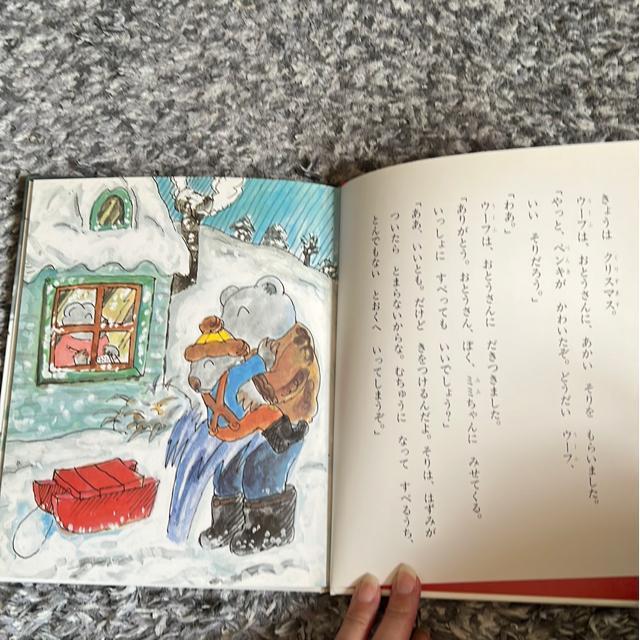 きょうは クリスマス。
ウーフは、おとうさんに、あかい そりを もらいました。
「やっと、ペンキが かわいたぞ。どうだい ウーフ、
いい そりだろう。」
「わあ。」
ウーフは、おとうさんに だきつきました。
「ありがとう。おとうさん、ぼく、ミミちゃんに みせてくる。
いっしょに すべっても いいでしょう？」
「ああ、いいとも。だけど きをつけるんだよ。そりは、はずみが
ついたら とまらないからな。むちゅうに なって すべるうち、
とんでもない とおくへ いってしまうぞ。」